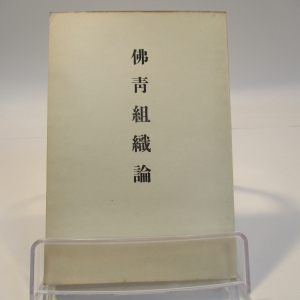 佛青組織論